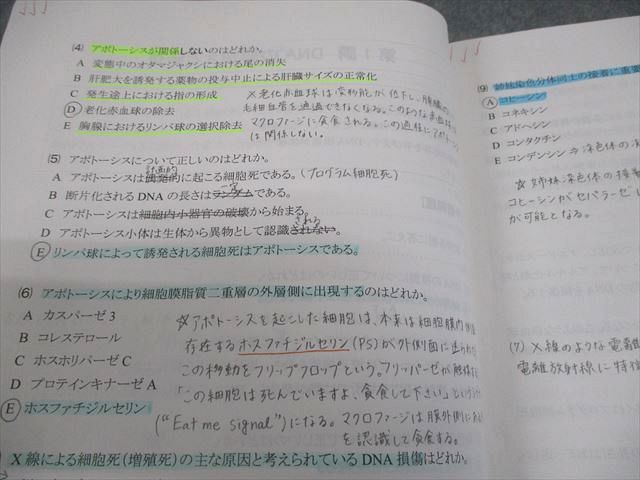 (4) アポトーシスが関係しないのはどれか。
A 変態中のオタマジャクシにおける尾の消失
B 肝肥大を誘発する薬物の投与中止による肝臓サイズの正常化
C 発生途上における指の形成
D 老化赤血球の除去
E 胸腺におけるリンパ球の選択除去
×老化赤血球は変形能が低下し、脾臓の
毛細血管を通過できなくなる。このような赤血球は
マクロファージに貪食される。この過程にアポトー
は関係しない。
(5) アポトーシスについて正しいのはどれか。
計画的
A アポトーシスは偶発的に起こる細胞死である。(プログラム細胞死)
一定
B 断片化される DNA の長さはランダムである。
C アポトーシスは細胞内小器官の破壊から始まる。
される
D アポトーシス小体は生体から異物として認識されない。
E リンパ球によって誘発される細胞死はアポトーシスである。
(6) アポトーシスにより細胞膜脂質二重層の外層側に出現するのはどれか。
A カスパーゼ 3
B コレステロール
C ホスホリパーゼ C
D プロテインキナーゼ A
E ホスファチジルセリン
☆アポトーシスを起こした細胞は、本来は細胞膜内
存在するホスファチジルセリン(PS)が外側面に
この移動をフリップフロップという。フリッパーゼが
「この細胞は死んでいますよ、貪食して下さい」という
("Eat me signal")になる。マクロファージは膜外側に
を認識して貪食する。
X 線による細胞死(増殖死)の主な原因と考えられている DNA 損傷はどれか。
第1講 DNA
(9) 姉妹染色分体同士の接着に重要
A コヒーシン
B コネキシン
C アドヘシン
D コンタクチン
E コンデンシン ⇒ 染色体の
☆姉妹染色体の接着
コヒーシンがセパラーゼ
が可能となる。
(7) X線のような電離
電離放射線に特